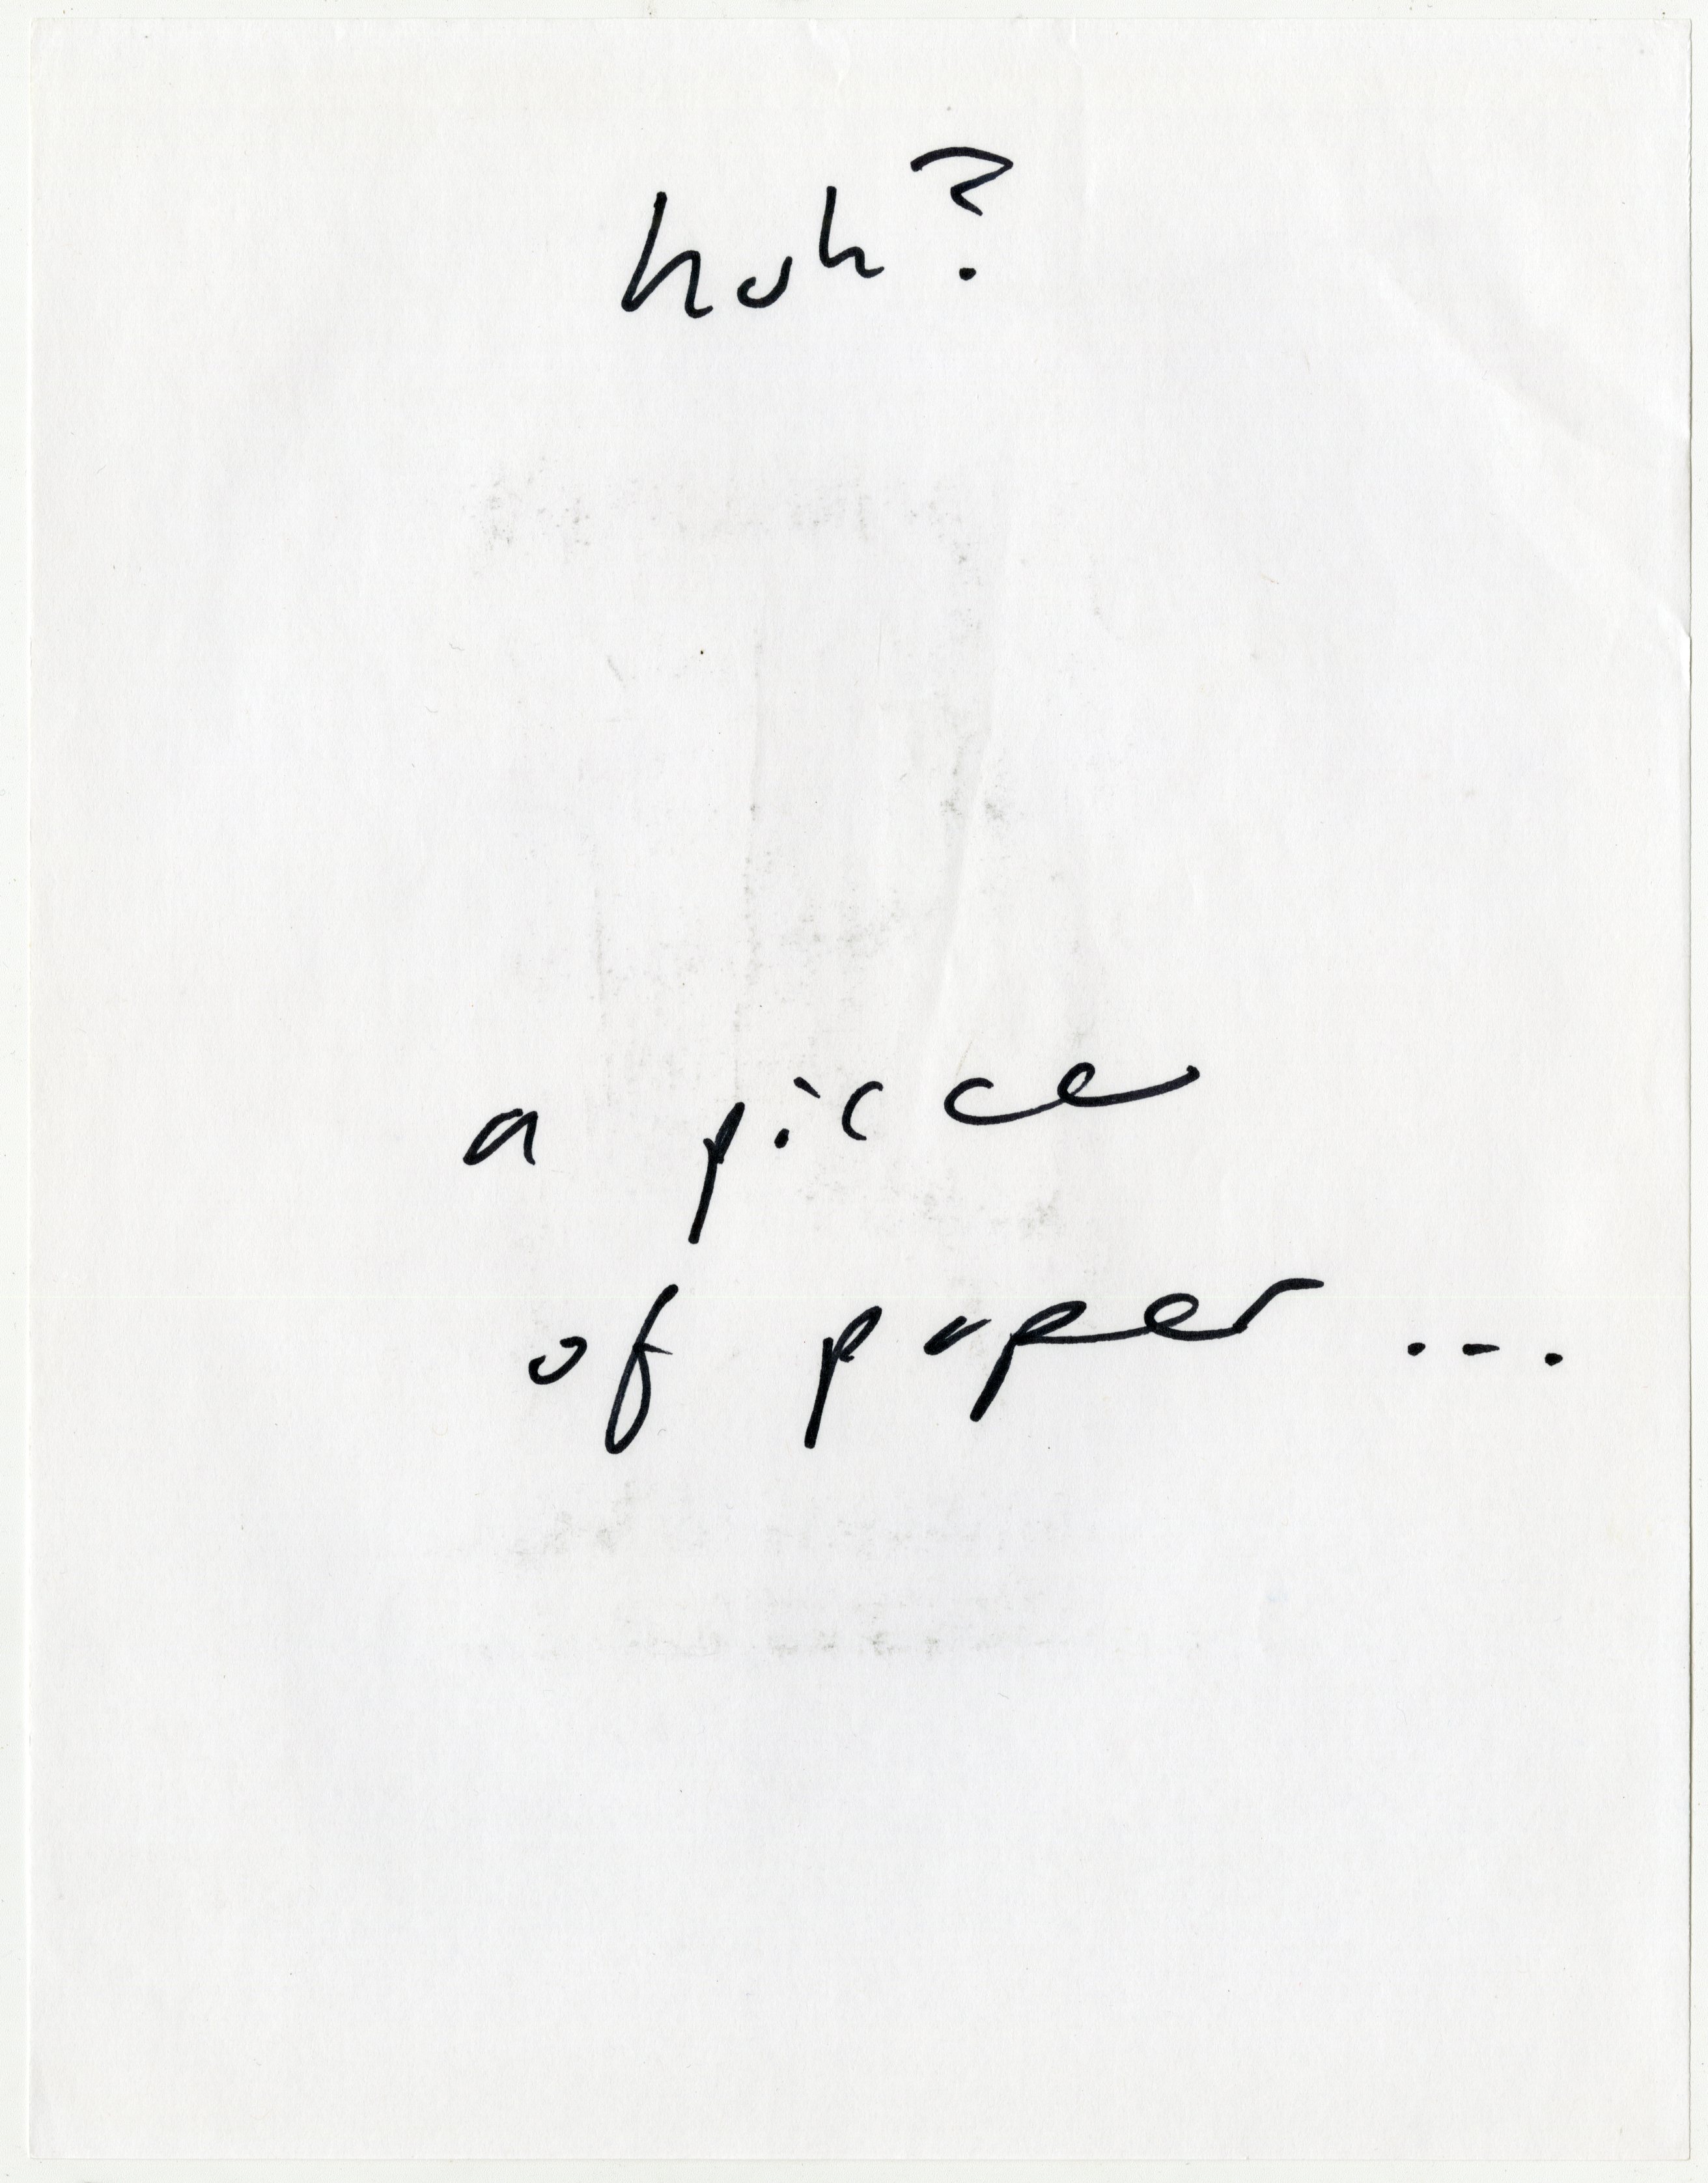 huh?
a piece
of paper...